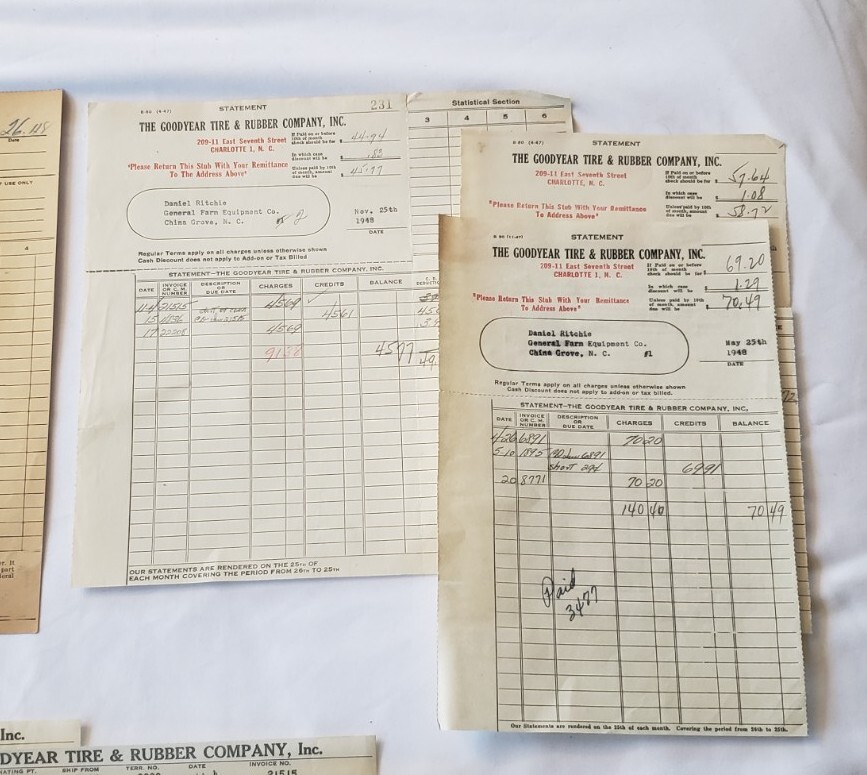 26.48
Date
USE ONLY
4
r. It
part
leral
8-80 (4-47)
STATEMENT
231
THE GOODYEAR TIRE & RUBBER COMPANY, INC.
209-11 East Seventh Street
CHARLOTTE 1, N. C.
*Please Return This Stub With Your Remittance
To The Address Above*
If Paid on or before
10th of month
check should be for $ 44.94
In which case
discount will be $ .83
Unless paid by 10th
of month, amount
due will be $ 45.77
Daniel Ritchie
General Farm Equipment Co.
China Grove, N. C. #2
Nov. 25th
1948
DATE
Regular Terms apply on all charges unless otherwise shown
Cash Discount does not apply to Add-on or Tax Billed
STATEMENT—THE GOODYEAR TIRE & RUBBER COMPANY, INC.
DATE INVOICE OR C. M. NUMBER DESCRIPTION OR DUE DATE CHARGES CREDITS BALANCE
11-4 21515 4569
15 4561
17 22208 4569
9138 4577
OUR STATEMENTS ARE RENDERED ON THE 25TH OF
EACH MONTH COVERING THE PERIOD FROM 26TH TO 25TH
Statistical Section
3 4 5 6
STATEMENT
THE GOODYEAR TIRE & RUBBER COMPANY, INC.
209-11 East Seventh Street
CHARLOTTE, N. C.
*Please Return This Stub With Your Remittance
To Address Above*
If Paid on or before
10th of month
check should be for $ 57.64
In which case
discount will be $ 1.08
Unless paid by 10th
of month, amount
due will be $ 58.72
STATEMENT
THE GOODYEAR TIRE & RUBBER COMPANY, INC.
209-11 East Seventh Street
CHARLOTTE, N. C.
*Please Return This Stub With Your Remittance
To Address Above*
If Paid on or before
10th of month
check should be for $ 69.20
In which case
discount will be $ 1.29
Unless paid by 10th
of month, amount
due will be $ 70.49
Daniel Ritchie
General Farm Equipment Co.
China Grove, N. C. #1
May 25th
1948
DATE
Regular Terms apply on all charges unless otherwise shown
Cash Discount does not apply to add-on or tax billed.
STATEMENT—THE GOODYEAR TIRE & RUBBER COMPANY, INC.
DATE INVOICE OR C. M. NUMBER DESCRIPTION OR DUE DATE CHARGES CREDITS BALANCE
4/26 6891 70 20
5-10 1895 6891
short 29¢ 6991
20 8771 70 20
140 40 70 49
Paid
3477
Our Statements are rendered on the 25th of each month. Covering the period from 26th to 25th.
Inc.
DYEAR TIRE & RUBBER COMPANY, Inc.
RATING PT. SHIP FROM TERR. NO. DATE INVOICE NO.
21515